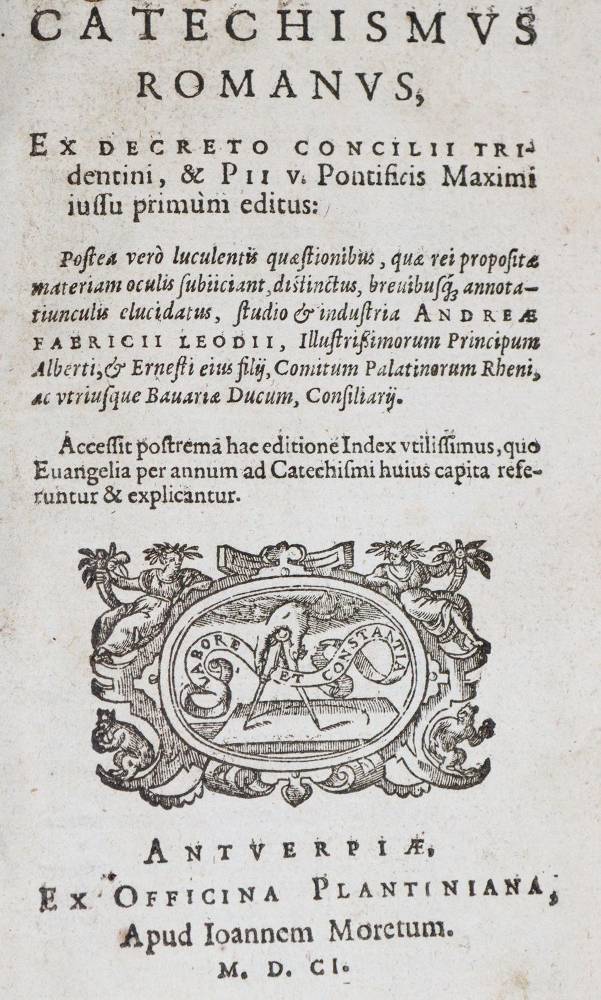 CATECHISMVS
ROMANVS,
EX DECRETO CONCILII TRI-
dentini, & PII V. Pontificis Maximi
iuſſu primùm editus:
Poſtea verò luculentis quæſtionibus, quæ rei propoſitæ
materiam oculis ſubijciant, diſtinctus, breuibuſq́; annota-
tiunculis elucidatus, ſtudio & induſtria ANDREÆ
FABRICII LEODII, Illuſtriſſimorum Principum
Alberti, & Erneſti eius filij, Comitum Palatinorum Rheni,
ac vtriuſque Bauariæ Ducum, Conſiliarij.
Acceſſit poſtremâ hac editione Index vtiliſſimus, quo
Euangelia per annum ad Catechiſmi huius capita refe-
runtur & explicantur.
LABORE ET CONSTANTIA
ANTVERPIÆ,
EX OFFICINA PLANTINIANA,
Apud Ioannem Moretum.
M. D. CI.